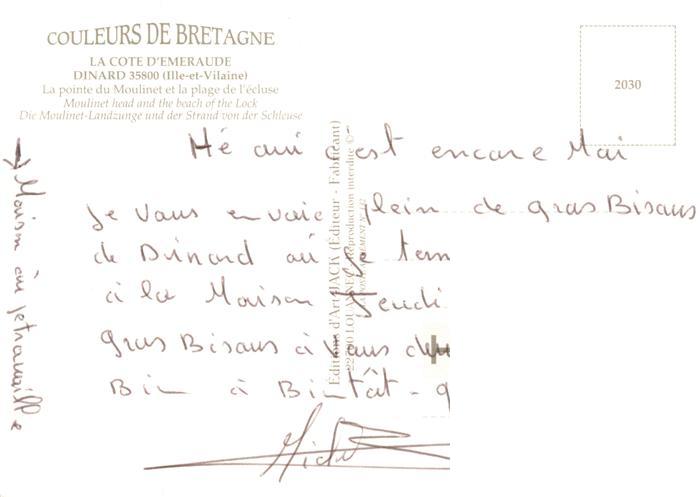 COULEURS DE BRETAGNE
LA COTE D'EMERAUDE
DINARD 35800 (Ille-et-Vilaine)
La pointe du Moulinet et la plage de l'écluse
Moulinet head and the beach of the Lock
Die Moulinet-Landzunge und der Strand von der Schleuse
2030
Hé oui c'est encore Moi
Je vous envoie plein de gros Bisous
de Dinard où Je
à la Maison Jeudi
gros Bisous à vous
à Bintât -
Maison où je travaille
Editions d'Art JACK (Editeur - Fabricant)
22
LOUANNEC
Reproduction interdite